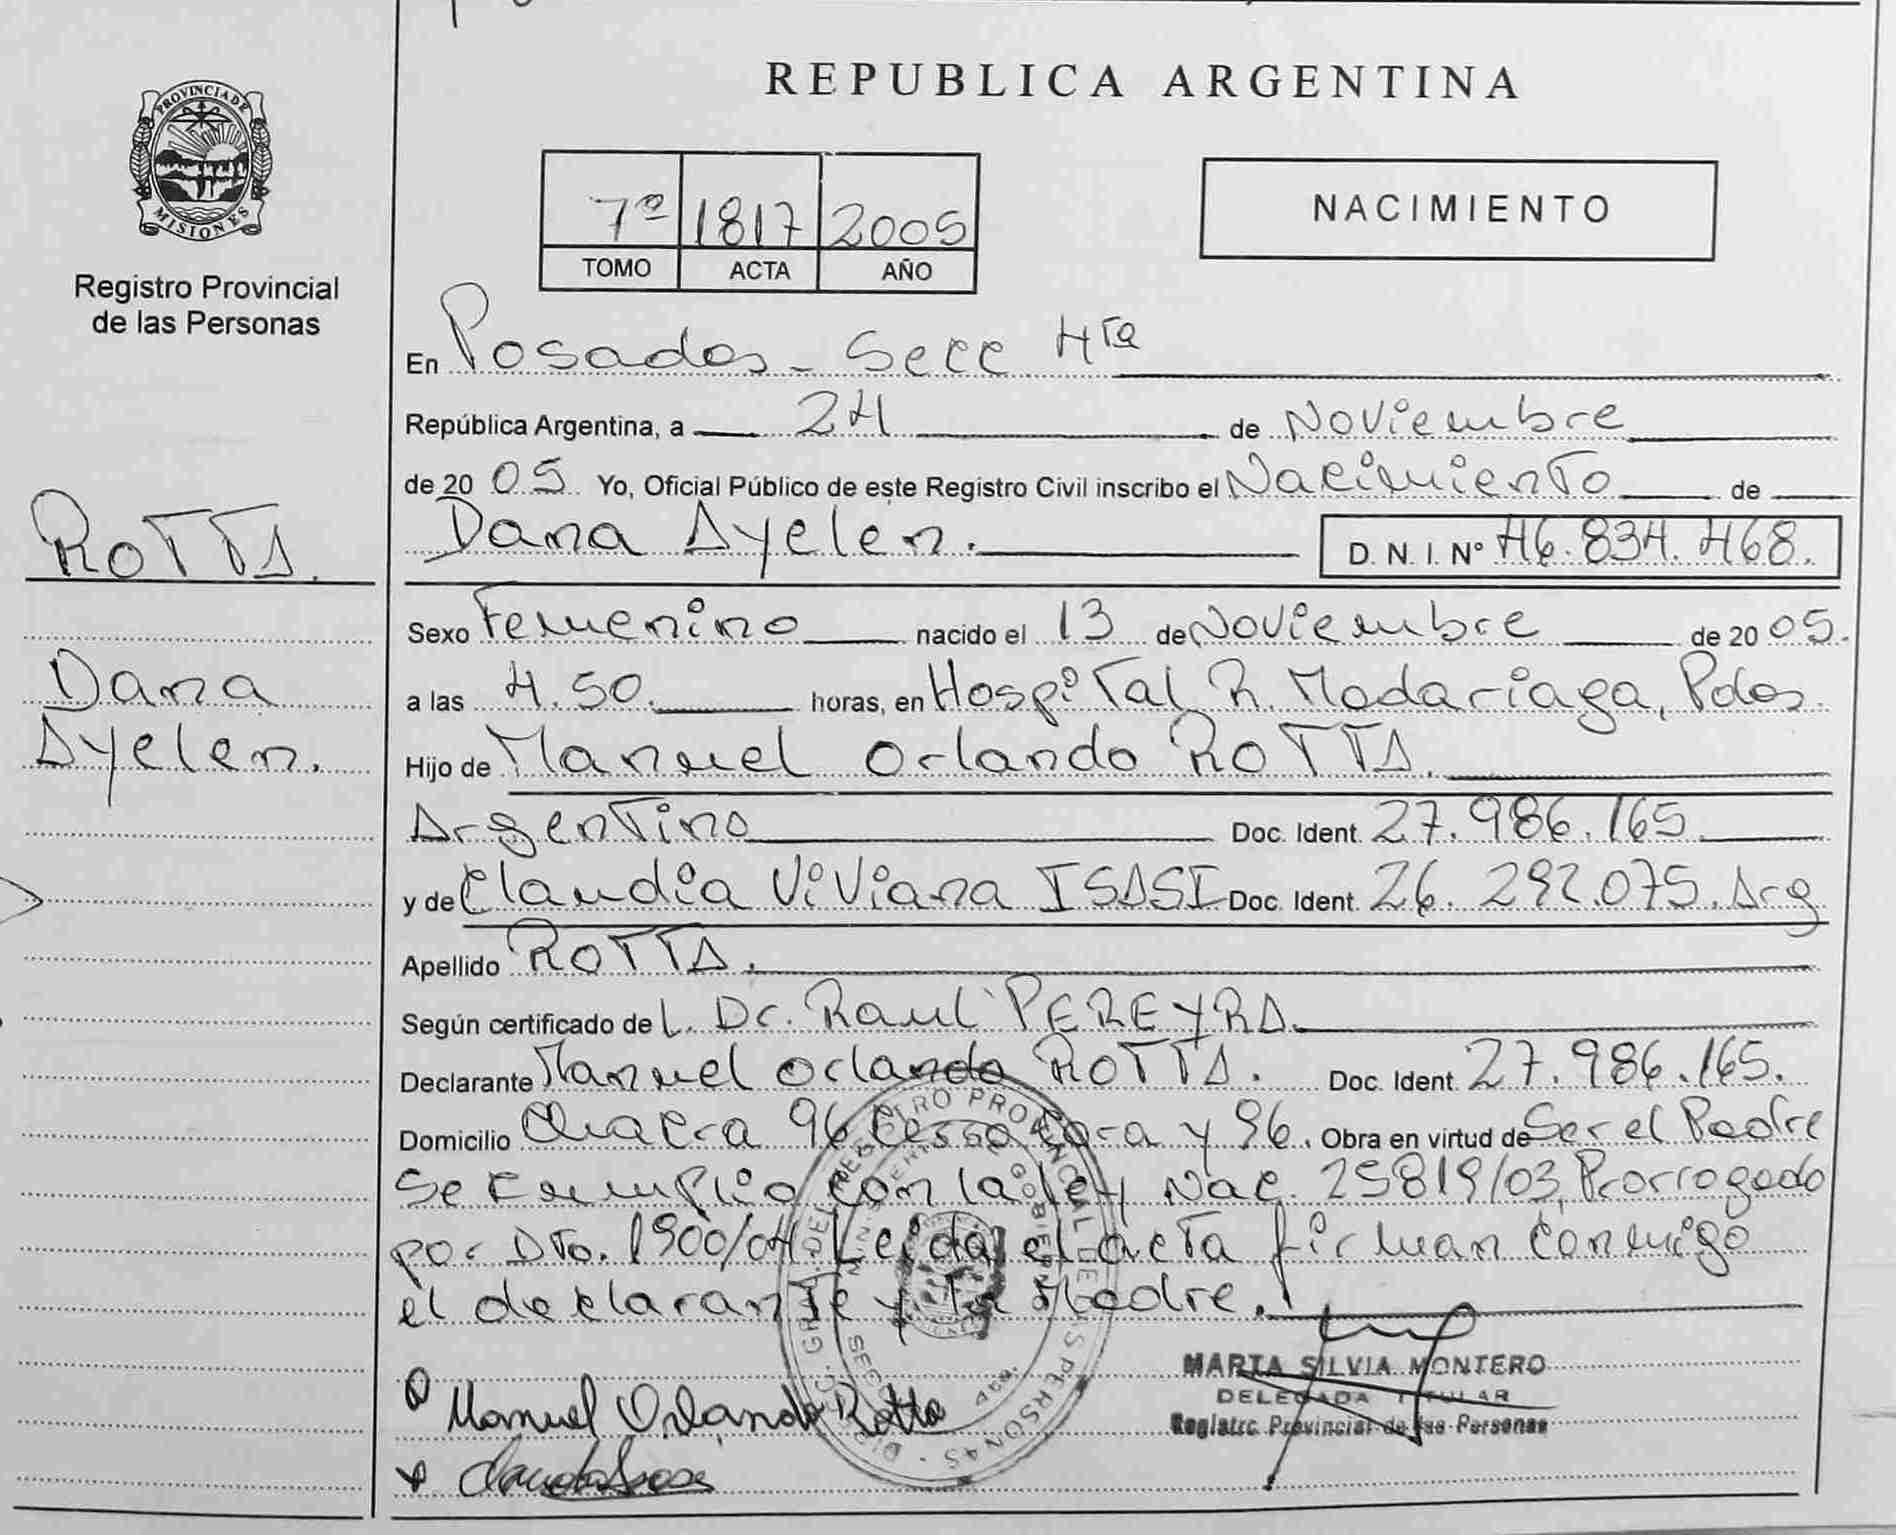 REPUBLICA ARGENTINA
PROVINCIA DE
MISIONES
Registro Provincial
de las Personas
7º 1817 2005
TOMO ACTA AÑO
NACIMIENTO
En Posadas - Secc 4ta
República Argentina, a 24 de Noviembre
de 20 05. Yo, Oficial Público de este Registro Civil inscribo el Nacimiento de
ROTTA.
Dana Ayelen. D. N. I. Nº 46.834.468.
Sexo Femenino nacido el 13 de Noviembre de 20 05.
Dana
a las 4.50. horas, en Hospital R. Madariaga, Pdas.
Ayelen.
Hijo de Manuel Orlando ROTTA.
Argentino Doc. Ident. 27.986.165.
y de Claudia Viviana ISASI Doc. Ident. 26.292.075. Arg
Apellido ROTTA.
Según certificado de L. Dr. Raul PEREYRA.
Declarante Manuel Orlando ROTTA. Doc. Ident. 27.986.165.
Domicilio Chacra 96 y 96. Obra en virtud de Ser el Padre
Se cumplio con la ley Nac. 25819/03, Prorrogado
por Dto. 1900/04 Leida el acta firman conmigo
el declarante y la Madre.
MARTA SILVIA MONTERO
DELEGADA TITULAR
Registro Provincial de las Personas
Manuel Orlando Rotta